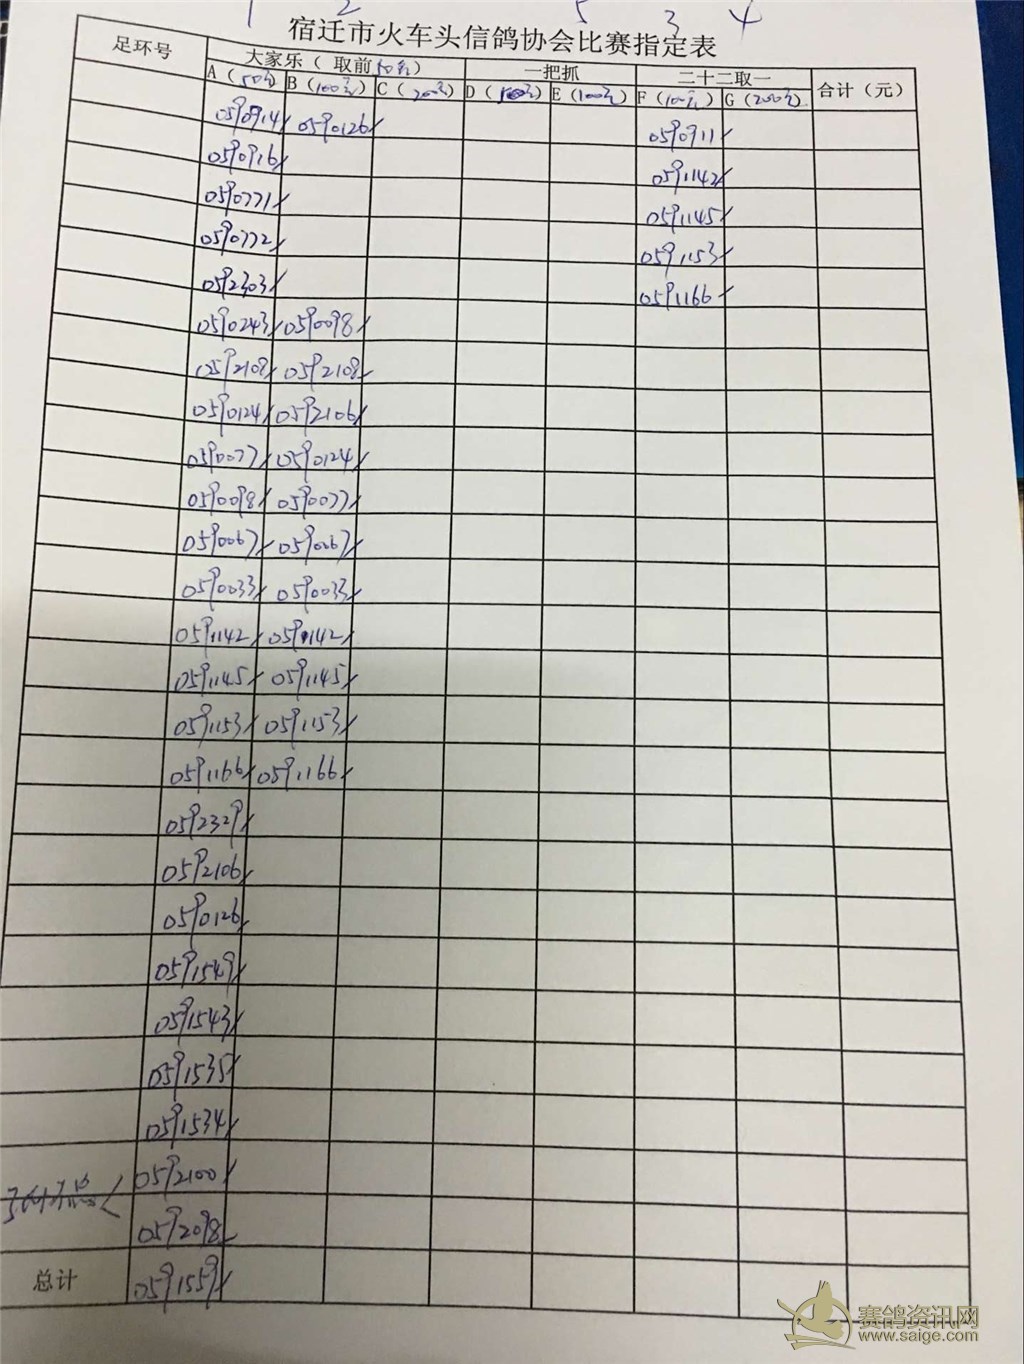 1 2 5 3 4
宿迁市火车头信鸽协会比赛指定表
足环号 大家乐（取前50名） 一把抓 二十二取一 合计（元）
A（50元） B（100元） C（200元） D（ 元） E（100元） F（100元） G（200元）
0590914 0590126 0590911
0590916 0591142
0590771 0591145
0590772 0591153
0592303 0591166
0590243 0590098
0592108 0592108
0590124 0592106
0590077 0590124
0590098 0590077
0590067 0590067
0590033 0590033
0591142 0591142
0591145 0591145
0591153 0591153
0591166 0591166
0592329
0592106
0590126
0591549
0591543
0591535
0591534
0592100
0592098
总计 0591559
赛鸽资讯网
www.saige.com